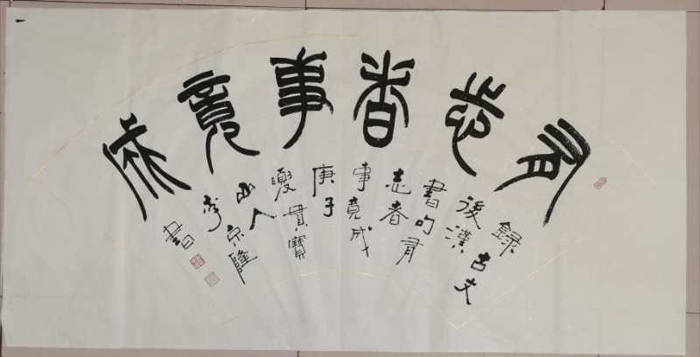 有志者事竟成
錄古文
後漢
書句有
志者
事竟成
庚子
夏貫寶
山人
李宗隆
書